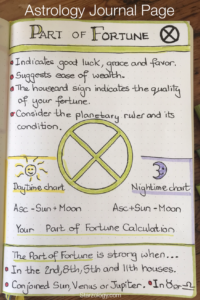 Astrology Journal Page
PART OF FORTUNE
Indicates good luck, grace and favor.
Suggests ease of wealth.
The house and sign indicates the quality
of your fortune.
Consider the planetary ruler and its
condition.
Daytime chart
Nighttime chart
Asc - Sun + Moon
Asc + Sun - Moon
Your Part of Fortune Calculation
The Part of Fortune is strong when...
In the 2nd, 8th, 5th and 11th houses.
Conjoined Sun, Venus or Jupiter. In ♉ or ♎